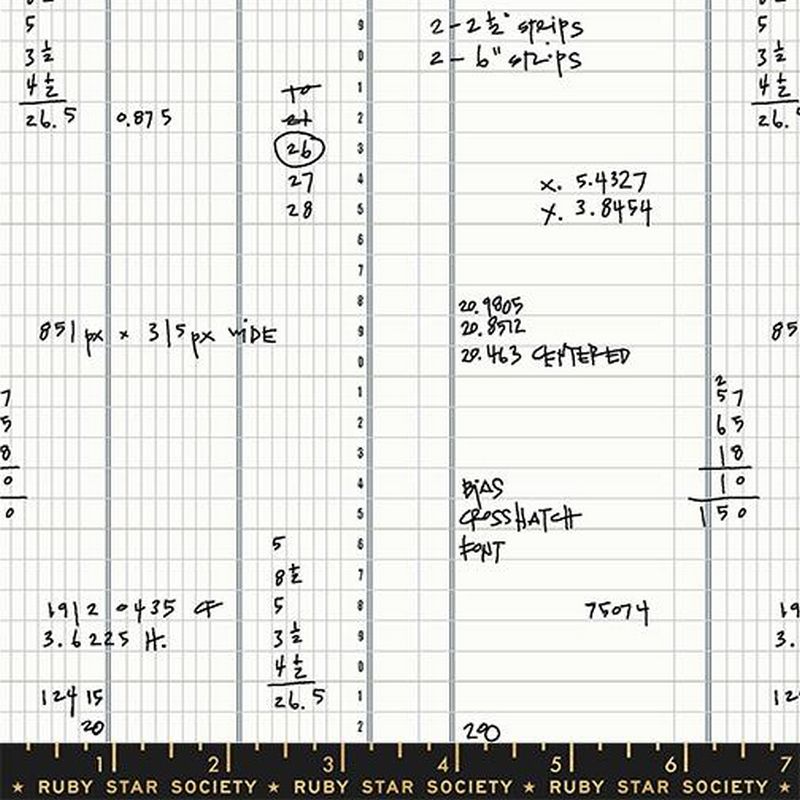 5
3 1/2
4 1/2
26.5 0.875
2 - 2 1/2" strips
2 - 6" strips
26
27
28
x. 5.4327
y. 3.8454
851 px x 315 px WIDE
20.9805
20.8572
20.463 CENTERED
2
57
65
18
10
150
BIAS
CROSSHATCH
FONT
5
8 1/2
5
3 1/2
4 1/2
26.5
1912 0435 CF
3.6225 H.
12415
20
75074
290
5
3 1/2
4 1/2
26.
85
19
3.
12
7
5
8
0
0
9
0
1
2
3
4
5
6
7
8
9
0
1
2
3
4
5
6
7
8
9
0
1
2
1 2 3 4 5 6 7
★ RUBY STAR SOCIETY ★ RUBY STAR SOCIETY ★ RUBY STAR SOCIETY ★